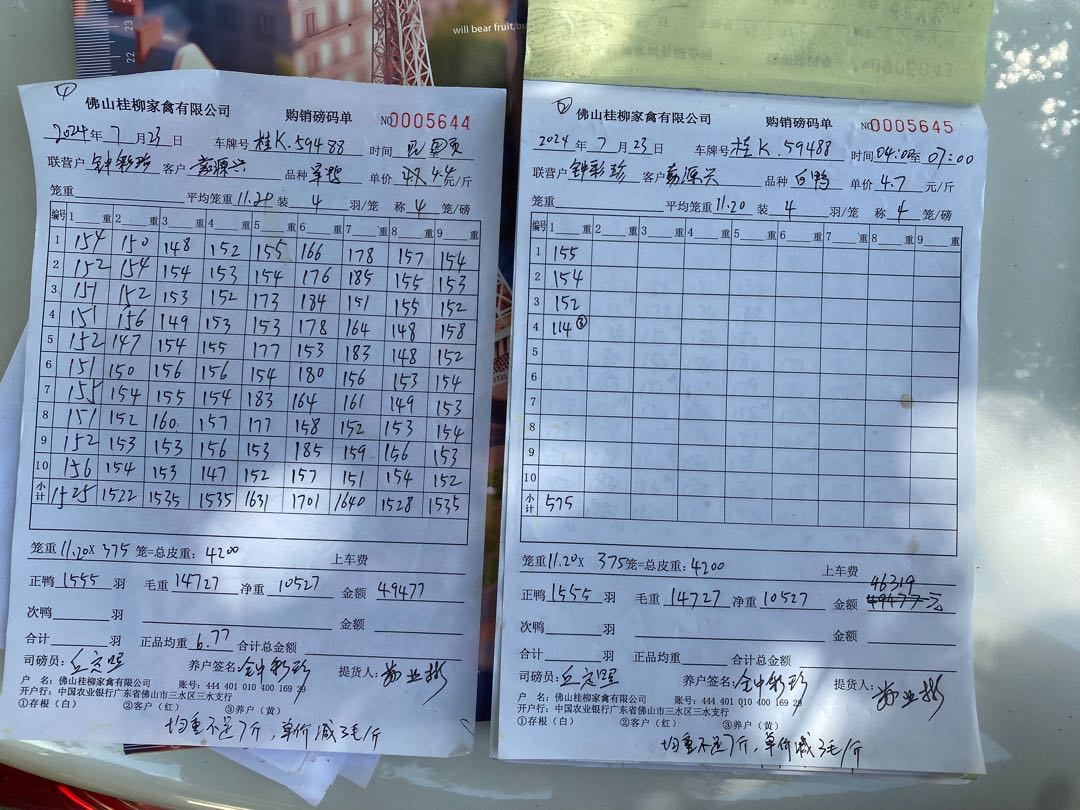 will bear fruit,bu
①
佛山桂柳家禽有限公司 购销磅码单 NO 0005644
2024年 7 月 23 日 车牌号 桂K.59488 时间
联营户 钟彩珍 客户 嘉源兴 品种 单价 4.4 元/斤
笼重 平均笼重 11.20 装 4 羽/笼 称 4 笼/磅
编号 1 重 2 重 3 重 4 重 5 重 6 重 7 重 8 重 9 重
1 154 150 148 152 155 166 178 157 154
2 152 154 154 153 154 176 185 155 153
3 151 152 153 152 173 184 151 155 152
4 151 156 149 153 153 178 164 148 158
5 152 147 154 155 177 153 183 148 152
6 151 150 156 156 154 180 156 153 154
7 155 154 155 154 183 164 161 149 153
8 151 152 160 157 177 158 152 153 154
9 152 153 153 156 153 185 159 156 153
10 156 154 153 147 152 157 151 154 152
小计 1525 1522 1535 1535 1631 1701 1640 1528 1535
笼重 11.20 X 375 笼=总皮重: 4200 上车费
正鸭 1555 羽 毛重 14727 净重 10527 金额 49477
次鸭 羽 金额
合计 羽 正品均重 6.77 合计总金额
司磅员: 养户签名: 钟彩珍 提货人:
户 名: 佛山桂柳家禽有限公司 账号: 444 401 010 400 169 29
开户行: 中国农业银行广东省佛山市三水区三水支行
①存根（白） ②客户（红） ③养户（黄）
均重不足7斤，单价减3毛/斤
②
佛山桂柳家禽有限公司 购销磅码单 NO 0005645
2024 年 7 月 23 日 车牌号 桂K.59488 时间 04:00至07:00
联营户 钟彩珍 客户 嘉源兴 品种 白鸭 单价 4.7 元/斤
笼重 平均笼重 11.20 装 4 羽/笼 称 4 笼/磅
编号 1 重 2 重 3 重 4 重 5 重 6 重 7 重 8 重 9 重
1 155
2 154
3 152
4 114③
5
6
7
8
9
10
小计 575
笼重 11.20 X 375 笼=总皮重: 4200 上车费
46319
正鸭 1555 羽 毛重 14727 净重 10527 金额 49477元
次鸭 羽 金额
合计 羽 正品均重 合计总金额
司磅员: 养户签名: 钟彩珍 提货人:
户 名: 佛山桂柳家禽有限公司 账号: 444 401 010 400 169 29
开户行: 中国农业银行广东省佛山市三水区三水支行
①存根（白） ②客户（红） ③养户（黄）
均重不足7斤，单价减3毛/斤